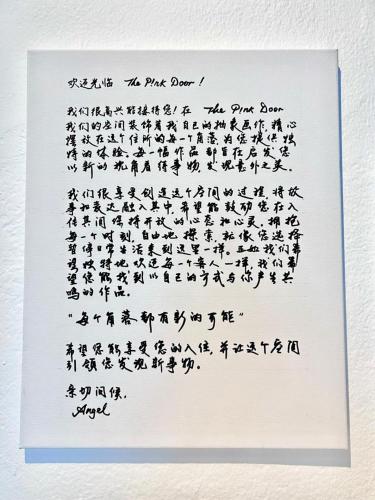 欢迎光临 The Pink Door！
我们很高兴能接待您！在 The Pink Door
我们的空间装饰着我自己的抽象画作，精心
摆放在这个住所的每一个角落，为您提供独
特的体验。每一幅作品都旨在启发您
以新的视角看待事物，发现意外之美。
我们很享受创造这个空间的过程，将故
事和表达融入其中，希望能鼓励您在入
住其间保持开放的心态和心灵。拥抱
每一个时刻，自由地探索，就像您选择
暂停日常生活来到这里一样。正如我们希
望独特地欢迎每一个客人一样，我们希
望您能找到以自己的方式与你产生共
鸣的作品。
“每个角落都有新的可能”
希望您能享受您的入住，并让这个房间
引领您发现新事物。
亲切问候，
Angel